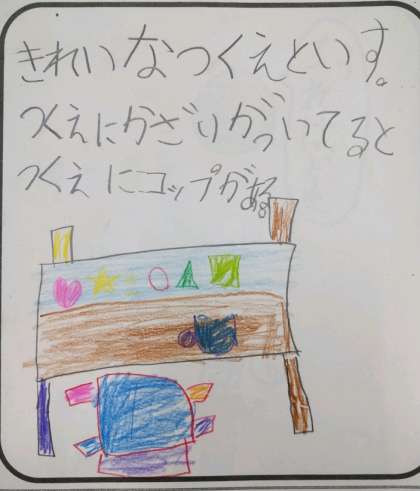 きれいなつくえといす。
つくえにかざりがついてると
つくえにコップがある。